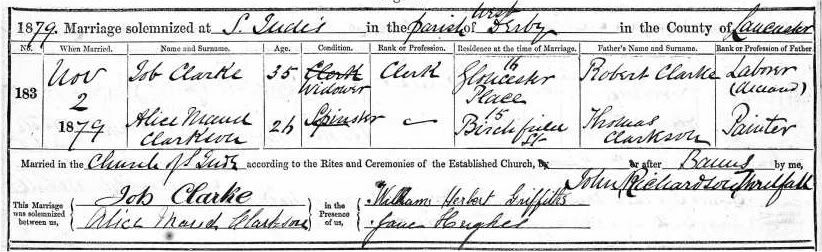 1879. Marriage solemnized at S. Jude's in the Parish of West Derby in the County of Lancaster
No. When Married. Name and Surname. Age. Condition. Rank or Profession. Residence at the time of Marriage. Father's Name and Surname. Rank or Profession of Father.
183 Nov 2 1879 Job Clarke 35 Clerk Widower Clerk 16 Gloucester Place Robert Clarke Laborer (deceased)
Alice Maud Clarkson 26 Spinster — 15 Birchfield St. Thomas Clarkson Painter
Married in the Church of St Jude according to the Rites and Ceremonies of the Established Church, by or after Banns by me,
John Richardson Threlfall
This Marriage was solemnized between us, Job Clarke Alice Maud Clarkson in the Presence of us, William Herbert Griffiths Jane Hughes